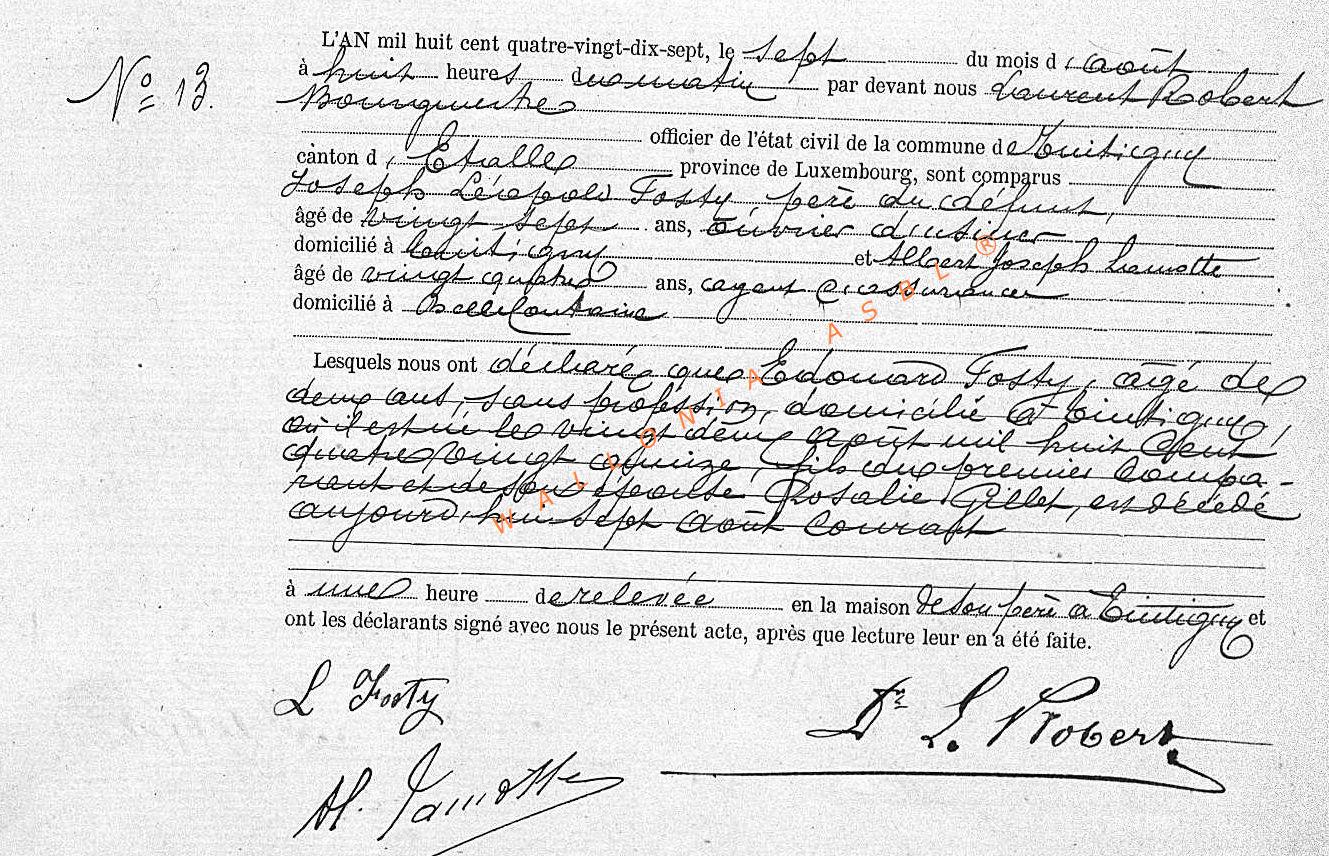 L'AN mil huit cent quatre-vingt-dix-sept, le sept du mois d'août
N° 13.
à huit heures du matin par devant nous Laurent Robert
Bourgmestre
officier de l'état civil de la commune de Tintigny
canton d'Etalle province de Luxembourg, sont comparus
Joseph Léopold Fosty père du défunt,
âgé de vingt sept ans, ouvrier d'usines
domicilié à Tintigny et Albert Joseph Lamotte
âgé de vingt quatre ans, agent d'assurances
domicilié à Bellefontaine
Lesquels nous ont déclaré que Edouard Fosty, âgé de
deux ans, sans profession, domicilié à Tintigny,
où il est né le vingt deux août mil huit cent
quatre vingt quinze, fils du premier compa-
rant et de son épouse Rosalie Gillet, est décédé
aujourd'hui sept août courant
à une heure de relevée en la maison de son père à Tintigny et
ont les déclarants signé avec nous le présent acte, après que lecture leur en a été faite.
L Fosty
Dr L. Robert
Al. Lamotte
WALLONIA ASBL ®